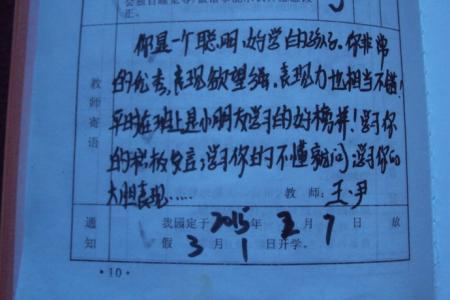 正。
教师寄语
你是一个聪明、好学的孩子。你非常
的优秀,表现欲望强,表现力也相当不错!
平时在班上是小朋友学习的好榜样!学习你
的积极发言;学习你的不懂就问;学习你的
大胆表现……
教师:王·尹
通知
我园定于2015年2月7日放
假 3月1日开学。
·10·